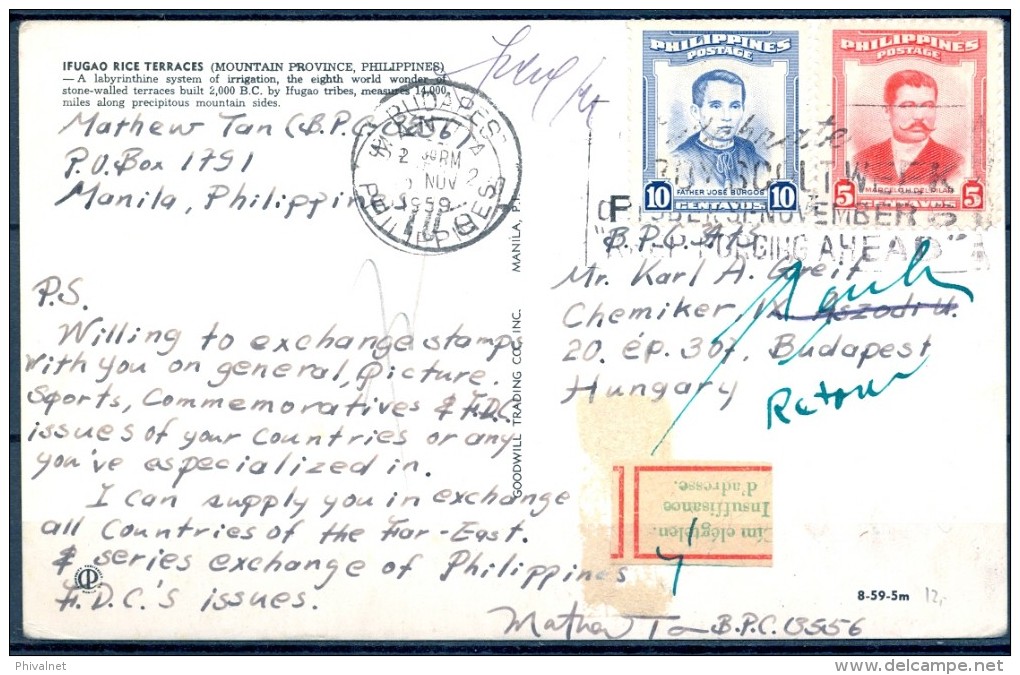 IFUGAO RICE TERRACES (MOUNTAIN PROVINCE, PHILIPPINES)
— A labyrinthine system of irrigation, the eighth world wonder of
stone-walled terraces built 2,000 B.C. by Ifugao tribes, measures 14,000
miles along precipitous mountain sides.
Mathew Tan (B.P.C.
P.O. Box 1791
Manila, Philippines
P.S.
Willing to exchange stamps
with you on general, picture.
Sports, Commemoratives & F.D.C.
issues of your Countries or any
you've especialized in.
I can supply you in exchange
all Countries of the Far-East.
& series exchange of Philippines
F.D.C.'s issues.
Mathew Tan B.P.C. 13556
GOODWILL TRADING CO., INC. MANILA, P.I.
BUDAPEST
NOV 2
1959
PHILIPPINES
PHILIPPINES
POSTAGE
10 FATHER JOSE BURGOS 10
CENTAVOS
PHILIPPINES
POSTAGE
5 MARCELO H. DEL PILAR 5
CENTAVOS
BOY SCOUT WEEK
OCTOBER 31-NOVEMBER
FORGING AHEAD"
B.P.C.
Mr. Karl A. Greit
Chemiker, IX. Aszodi U.
20. ép. 307, Budapest
Hungary
Retour
Insuffisance
d'adresse.
cím elégtelen.
8-59-5m
12,-
Phivalnet
www.delcampe.net